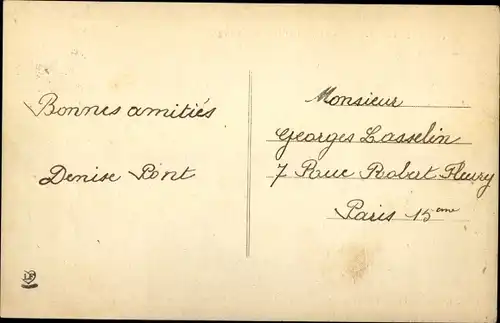 Bonnes amitiés
Denise Pont
Monsieur
Georges Lasselin
7 Rue Robert Fleury
Paris 15eme